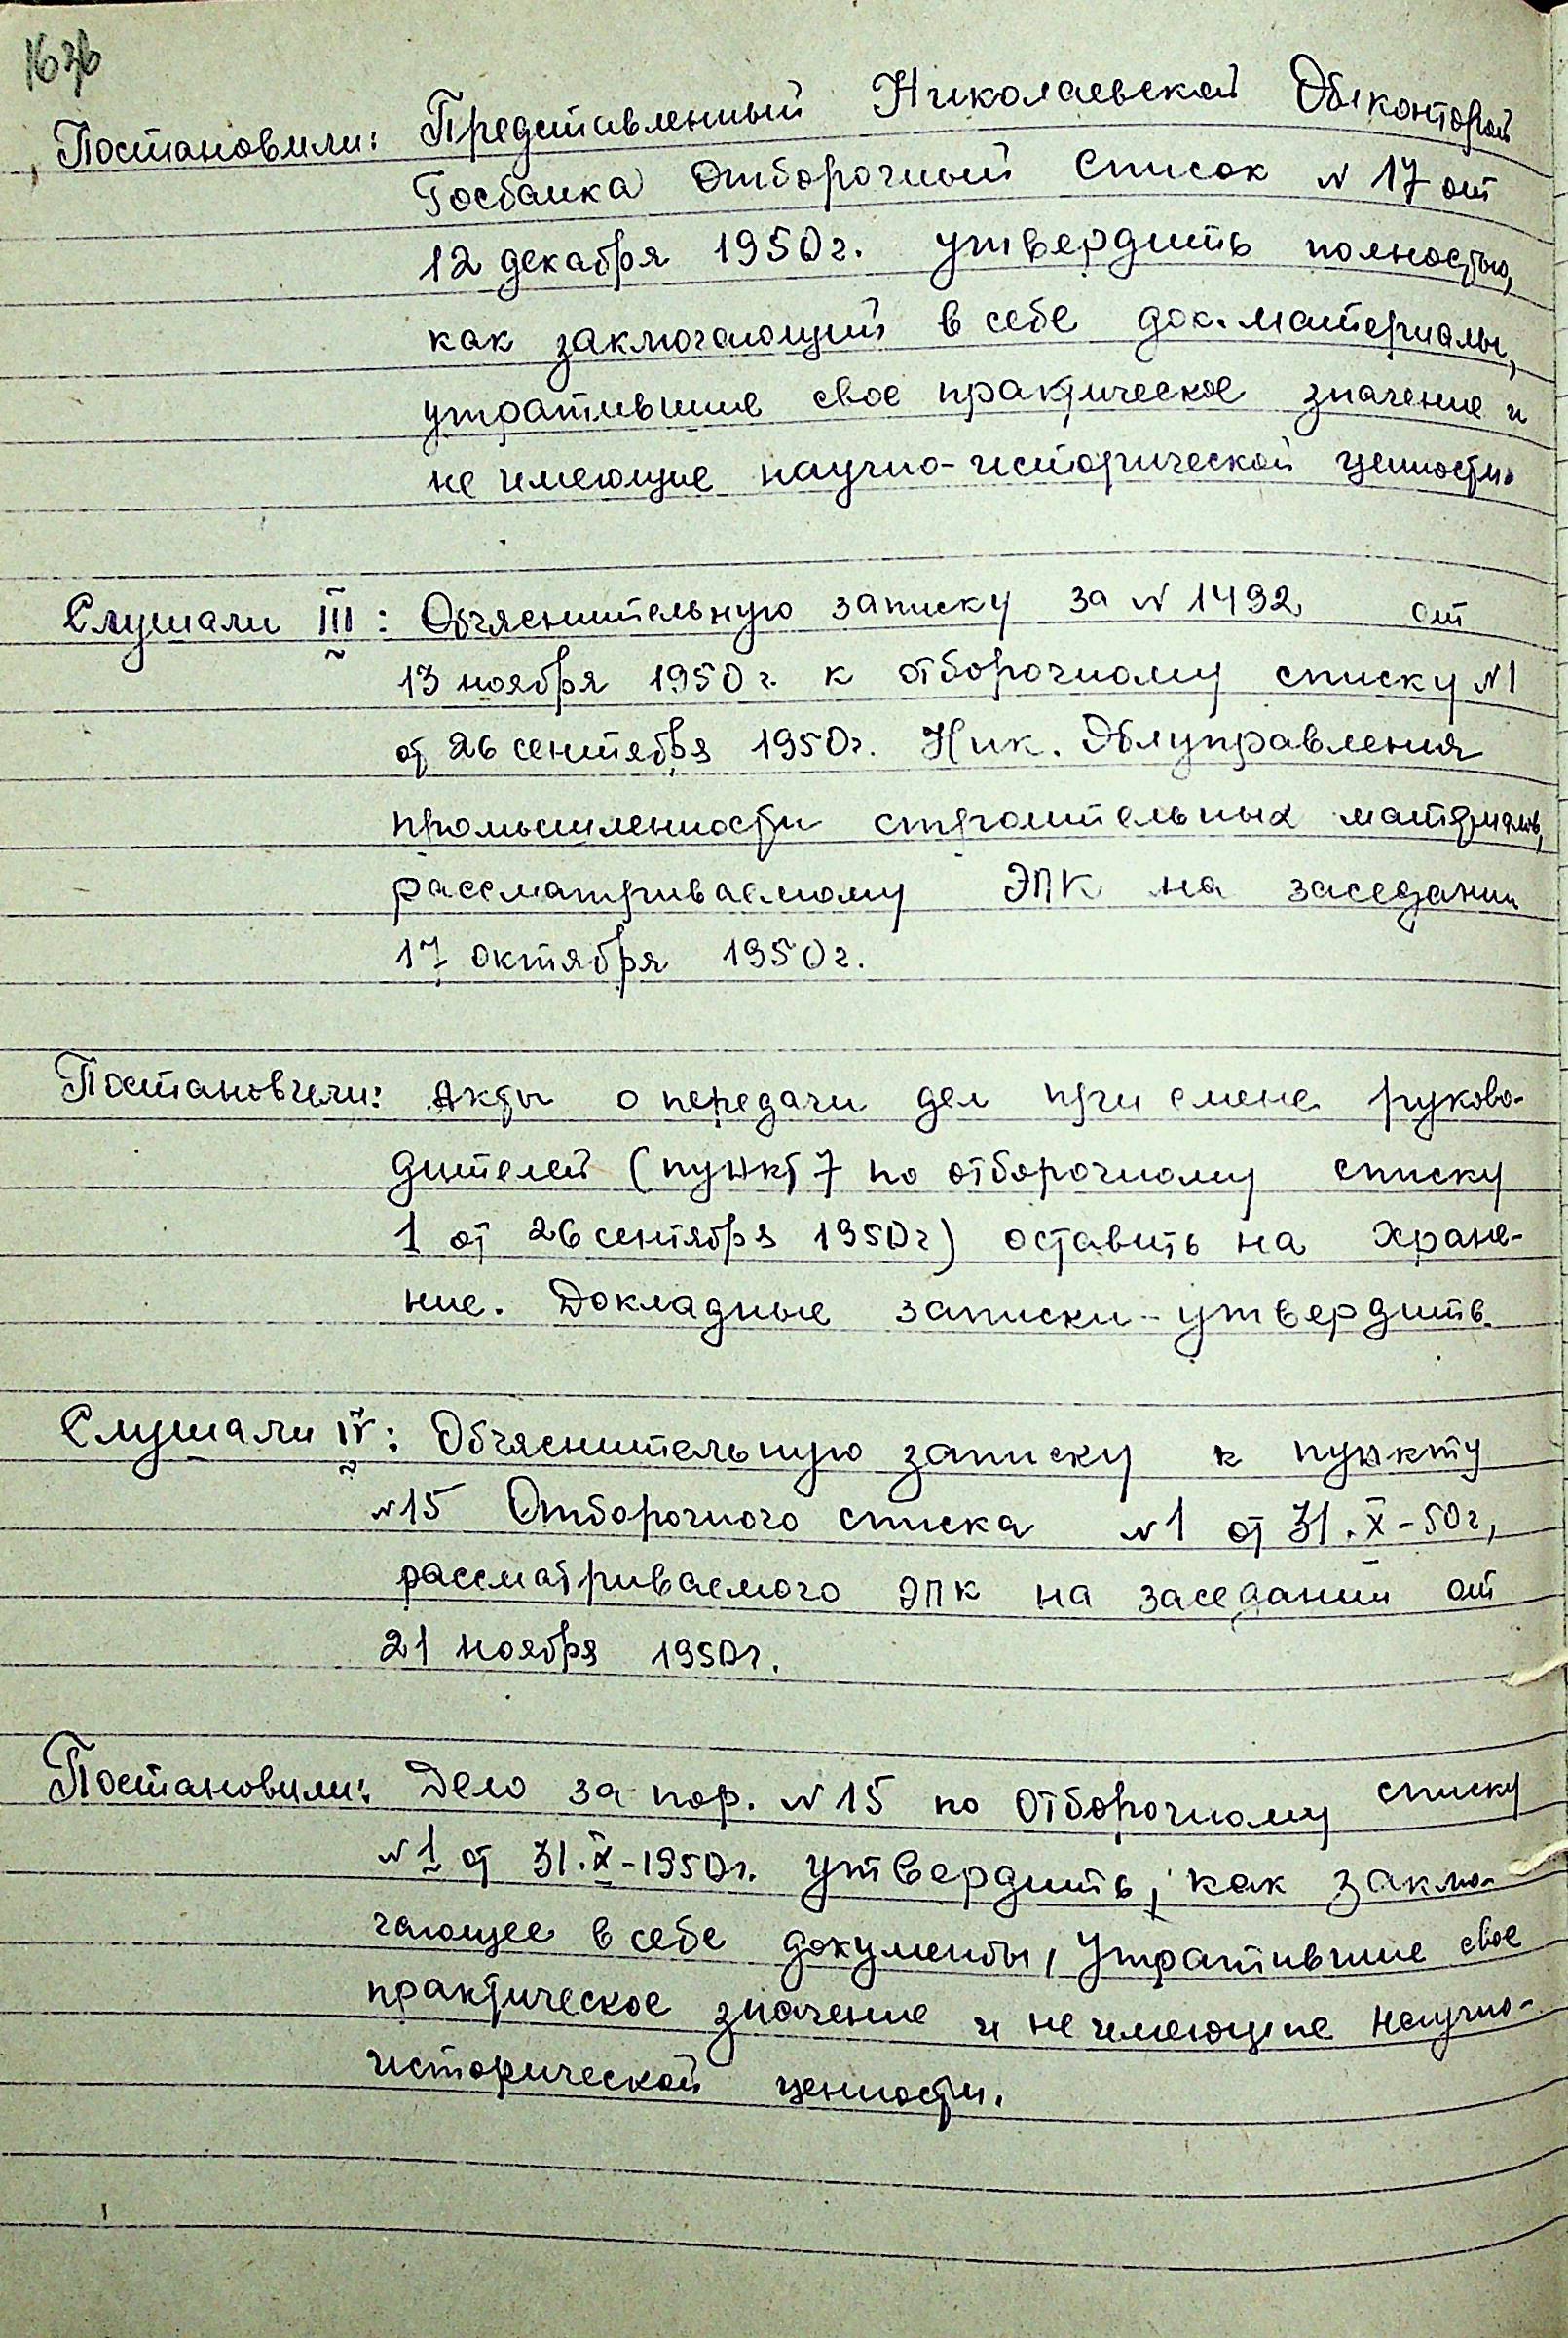 163б
Постановили: Представленный Николаевской Облконторой
Госбанка Отборочный Список N 17 от
12 декабря 1950г. утвердить полностью,
как заключающий в себе док.материалы,
утратившие свое практическое значение и
не имеющие научно-исторической ценности.
Слушали III: Объяснительную записку за N 1492 от
13 ноября 1950г. к отборочному списку N1
от 26 сентября 1950г. Ник. Облуправления
промышленности строительных материалов,
рассматриваемому ЭПК на заседании
17 октября 1950г.
Постановили: Акты о передачи дел при смене руково-
дителей (пункт 7 по отборочному списку
1 от 26 сентября 1950г) оставить на хране-
ние. Докладные записки - утвердить.
Слушали IV: Объяснительную записку к пункту
N15 Отборочного списка N1 от 31.X-50г,
рассматриваемого ЭПК на заседании от
21 ноября 1950г.
Постановили: Дело за пор. N 15 по Отборочному списку
N1 от 31.X-1950г. утвердить, как заклю-
чающее в себе документы, утратившие свое
практическое значение и не имеющие научно-
исторической ценности.